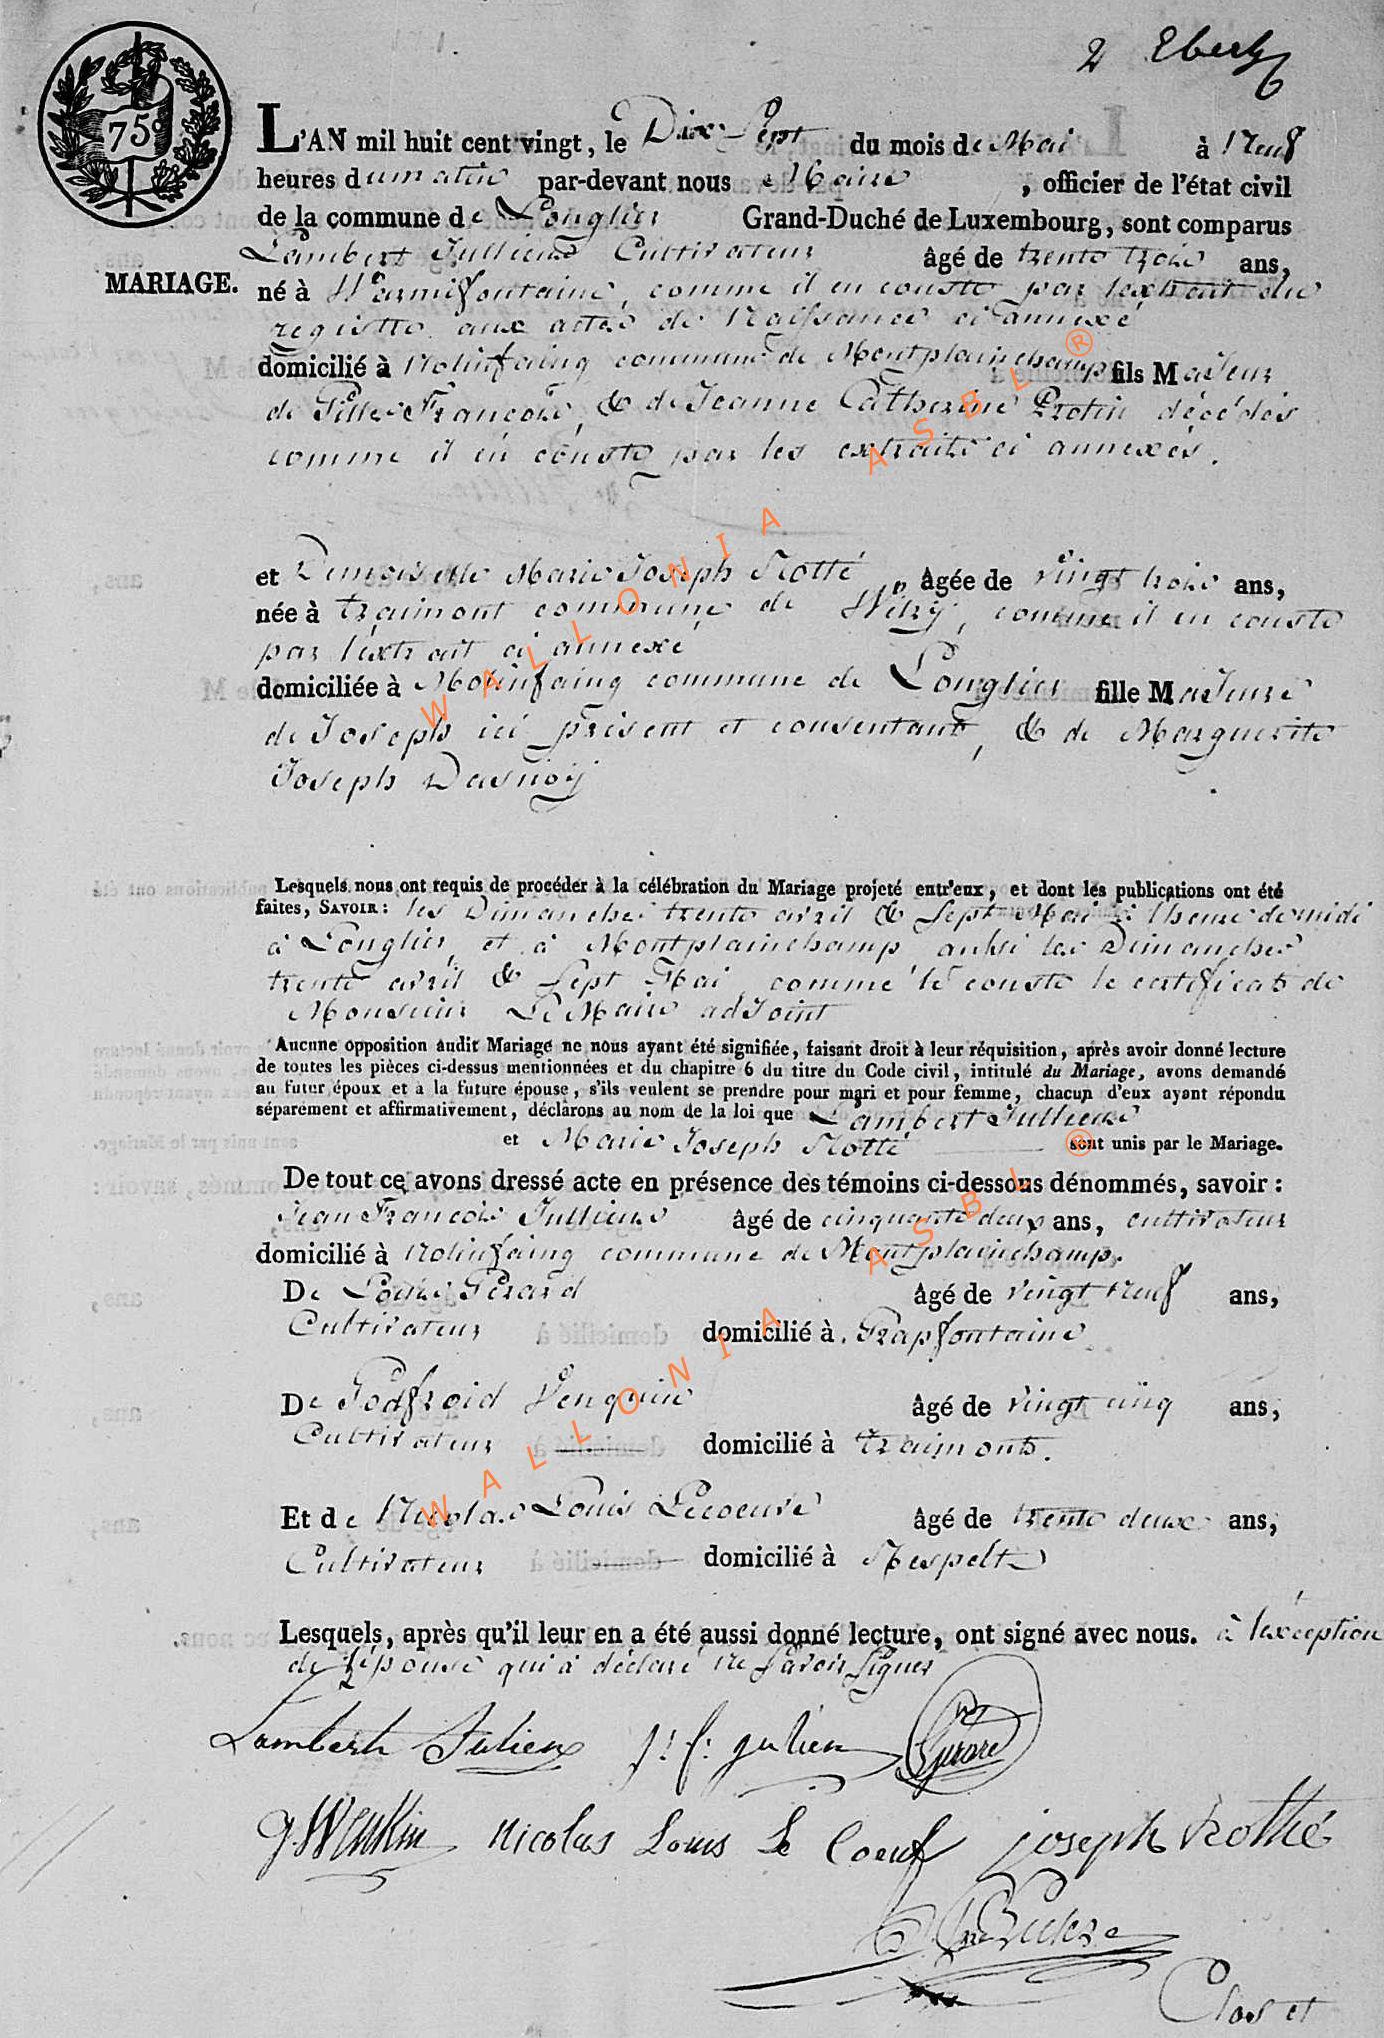 2
75c
L'AN mil huit cent vingt, le Dix Sept du mois de Mai à Neuf
heures du matin par-devant nous Maire, officier de l'état civil
de la commune de Longlier Grand-Duché de Luxembourg, sont comparus
Lambert Jullien Cultivateur âgé de trente trois ans,
MARIAGE.
né à Warmifontaine, comme il en conste par l'extrait du
registre aux actes de Naissance ci annexé
domicilié à Molinfaing commune de Montplainchamp fils Majeur
de Gille François, & de Jeanne Catherine Protin décédés
comme il en conste par les extraits ci annexés.
et Demoiselle Marie Joseph Notté, âgée de vingt trois ans,
née à traimont commune de Witry, comme il en conste
par l'extrait ci annexé
domiciliée à Molinfaing commune de Longlier fille Majeure
de Joseph ici présent et consentant, & de Marguerite
Joseph Dasnoy
Lesquels nous ont requis de procéder à la célébration du Mariage projeté entr'eux, et dont les publications ont été
faites, SAVOIR: les Dimanches trente avril & Sept Mai à l'heure de midi
à Longlier, et à Montplainchamp aussi les Dimanches
trente avril & Sept Mai comme le conste le certificat de
Monsieur Le Maire adjoint
Aucune opposition audit Mariage ne nous ayant été signifiée, faisant droit à leur réquisition, après avoir donné lecture
de toutes les pièces ci-dessus mentionnées et du chapitre 6 du titre du Code civil, intitulé du Mariage, avons demandé
au futur époux et à la future épouse, s'ils veulent se prendre pour mari et pour femme, chacun d'eux ayant répondu
séparément et affirmativement, déclarons au nom de la loi que Lambert Jullien
et Marie Joseph Notté sont unis par le Mariage.
De tout ce avons dressé acte en présence des témoins ci-dessous dénommés, savoir :
Jean François Jullien âgé de cinquante deux ans, cultivateur
domicilié à Molinfaing commune de Montplainchamp.
De Louis Gerard âgé de vingt neuf ans,
Cultivateur domicilié à Grapfontaine
De Godfroid Wenquin âgé de vingt cinq ans,
Cultivateur domicilié à traimont.
Et de Nicolas Louis Lecoeuvre âgé de trente deux ans,
Cultivateur domicilié à Respelt
Lesquels, après qu'il leur en a été aussi donné lecture, ont signé avec nous. à l'exception
de l'épouse qui a déclaré ne Savoir Signer
Lambert Julien j: f: julien Gerard
Nicolas Louis Le Coeuf joseph Notté
Clos et
WALLONIA ASBL ®
WALLONIA ASBL ®